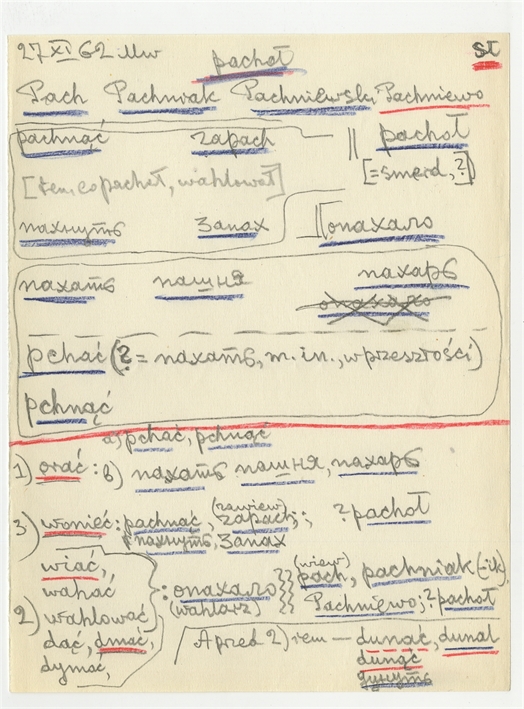 27 XI 62 Mw pachoł SŁ
Pach Pachniak Pachniewski Pachniewo
pachnąć zapach || pachoł
[ten, co pachoł, wahlował] [=smerd, ?]
пахнуть Запах || опахало
пахать пашня пахарь
опахало
pchać (? = пахать, m. in., w przeszłości)
pchnąć
a) pchać, pchnąć
1) orać: b) пахать пашня, пахарь
3) wonieć: pachnąć, (zawiew) zapach; ; ? pachoł
пахнуть, Запах
wiać,
wahać
2) wahlować
dać, dmać,
dymać,
: опахало (wiew) pach, pachniak (-ik),
(wahlarz) Pachniewo; ? pachoł
A przed 2) tem — dunać, dunal
dunąć
дунуть